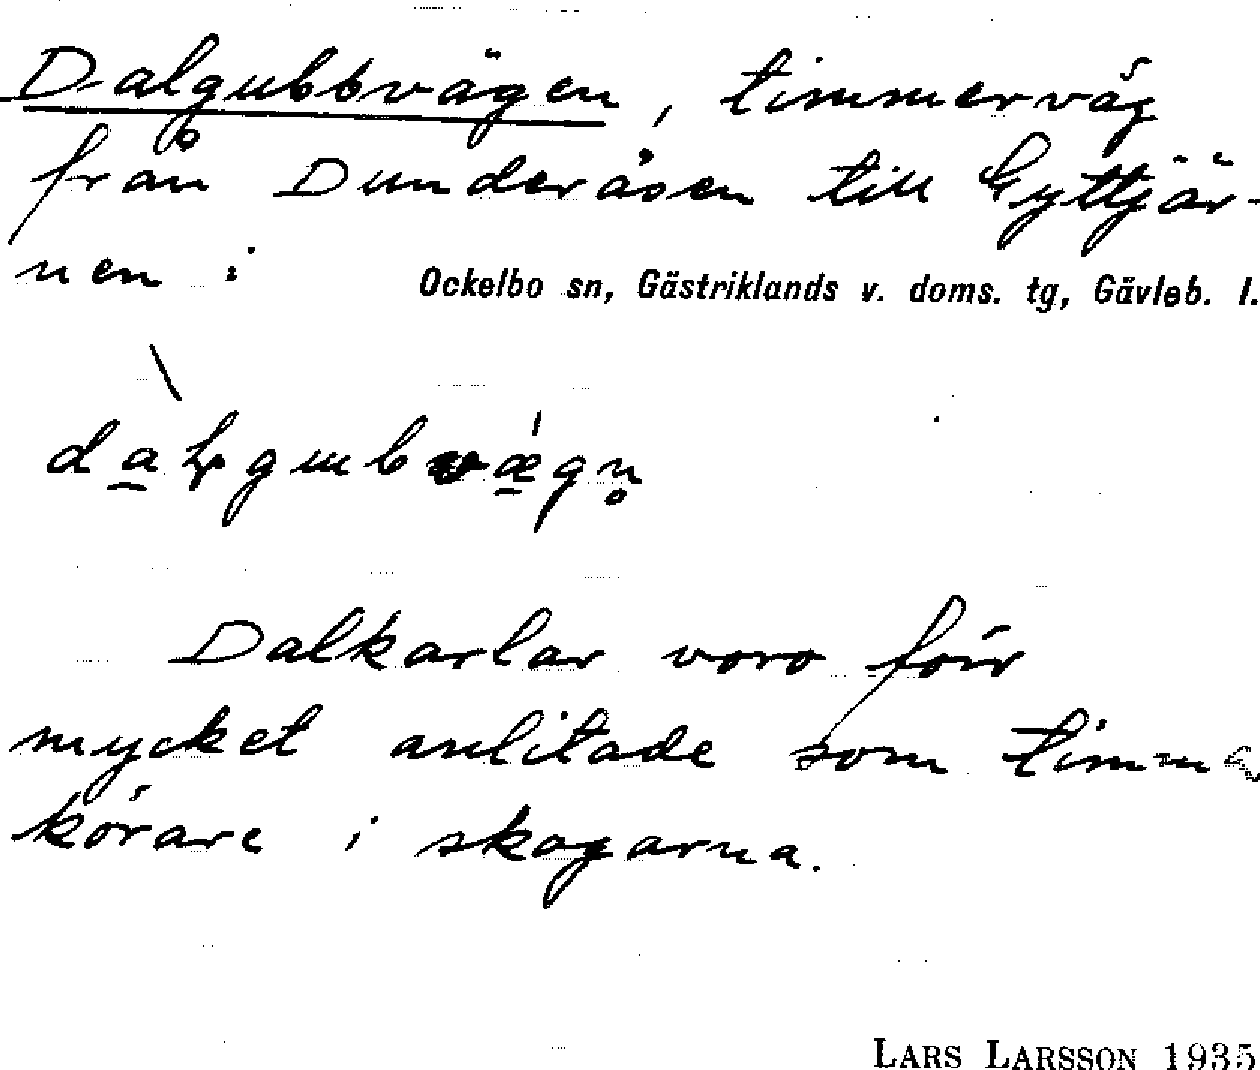 Dalgubbvägen, timmerväg
från Dunderåsen till Gyttjär-
nen i Ockelbo sn, Gästriklands v. doms. tg, Gävleb. l.
Dalkarlar voro förr
mycket anlitade som
körare i skogarna.
LARS LARSSON 1935